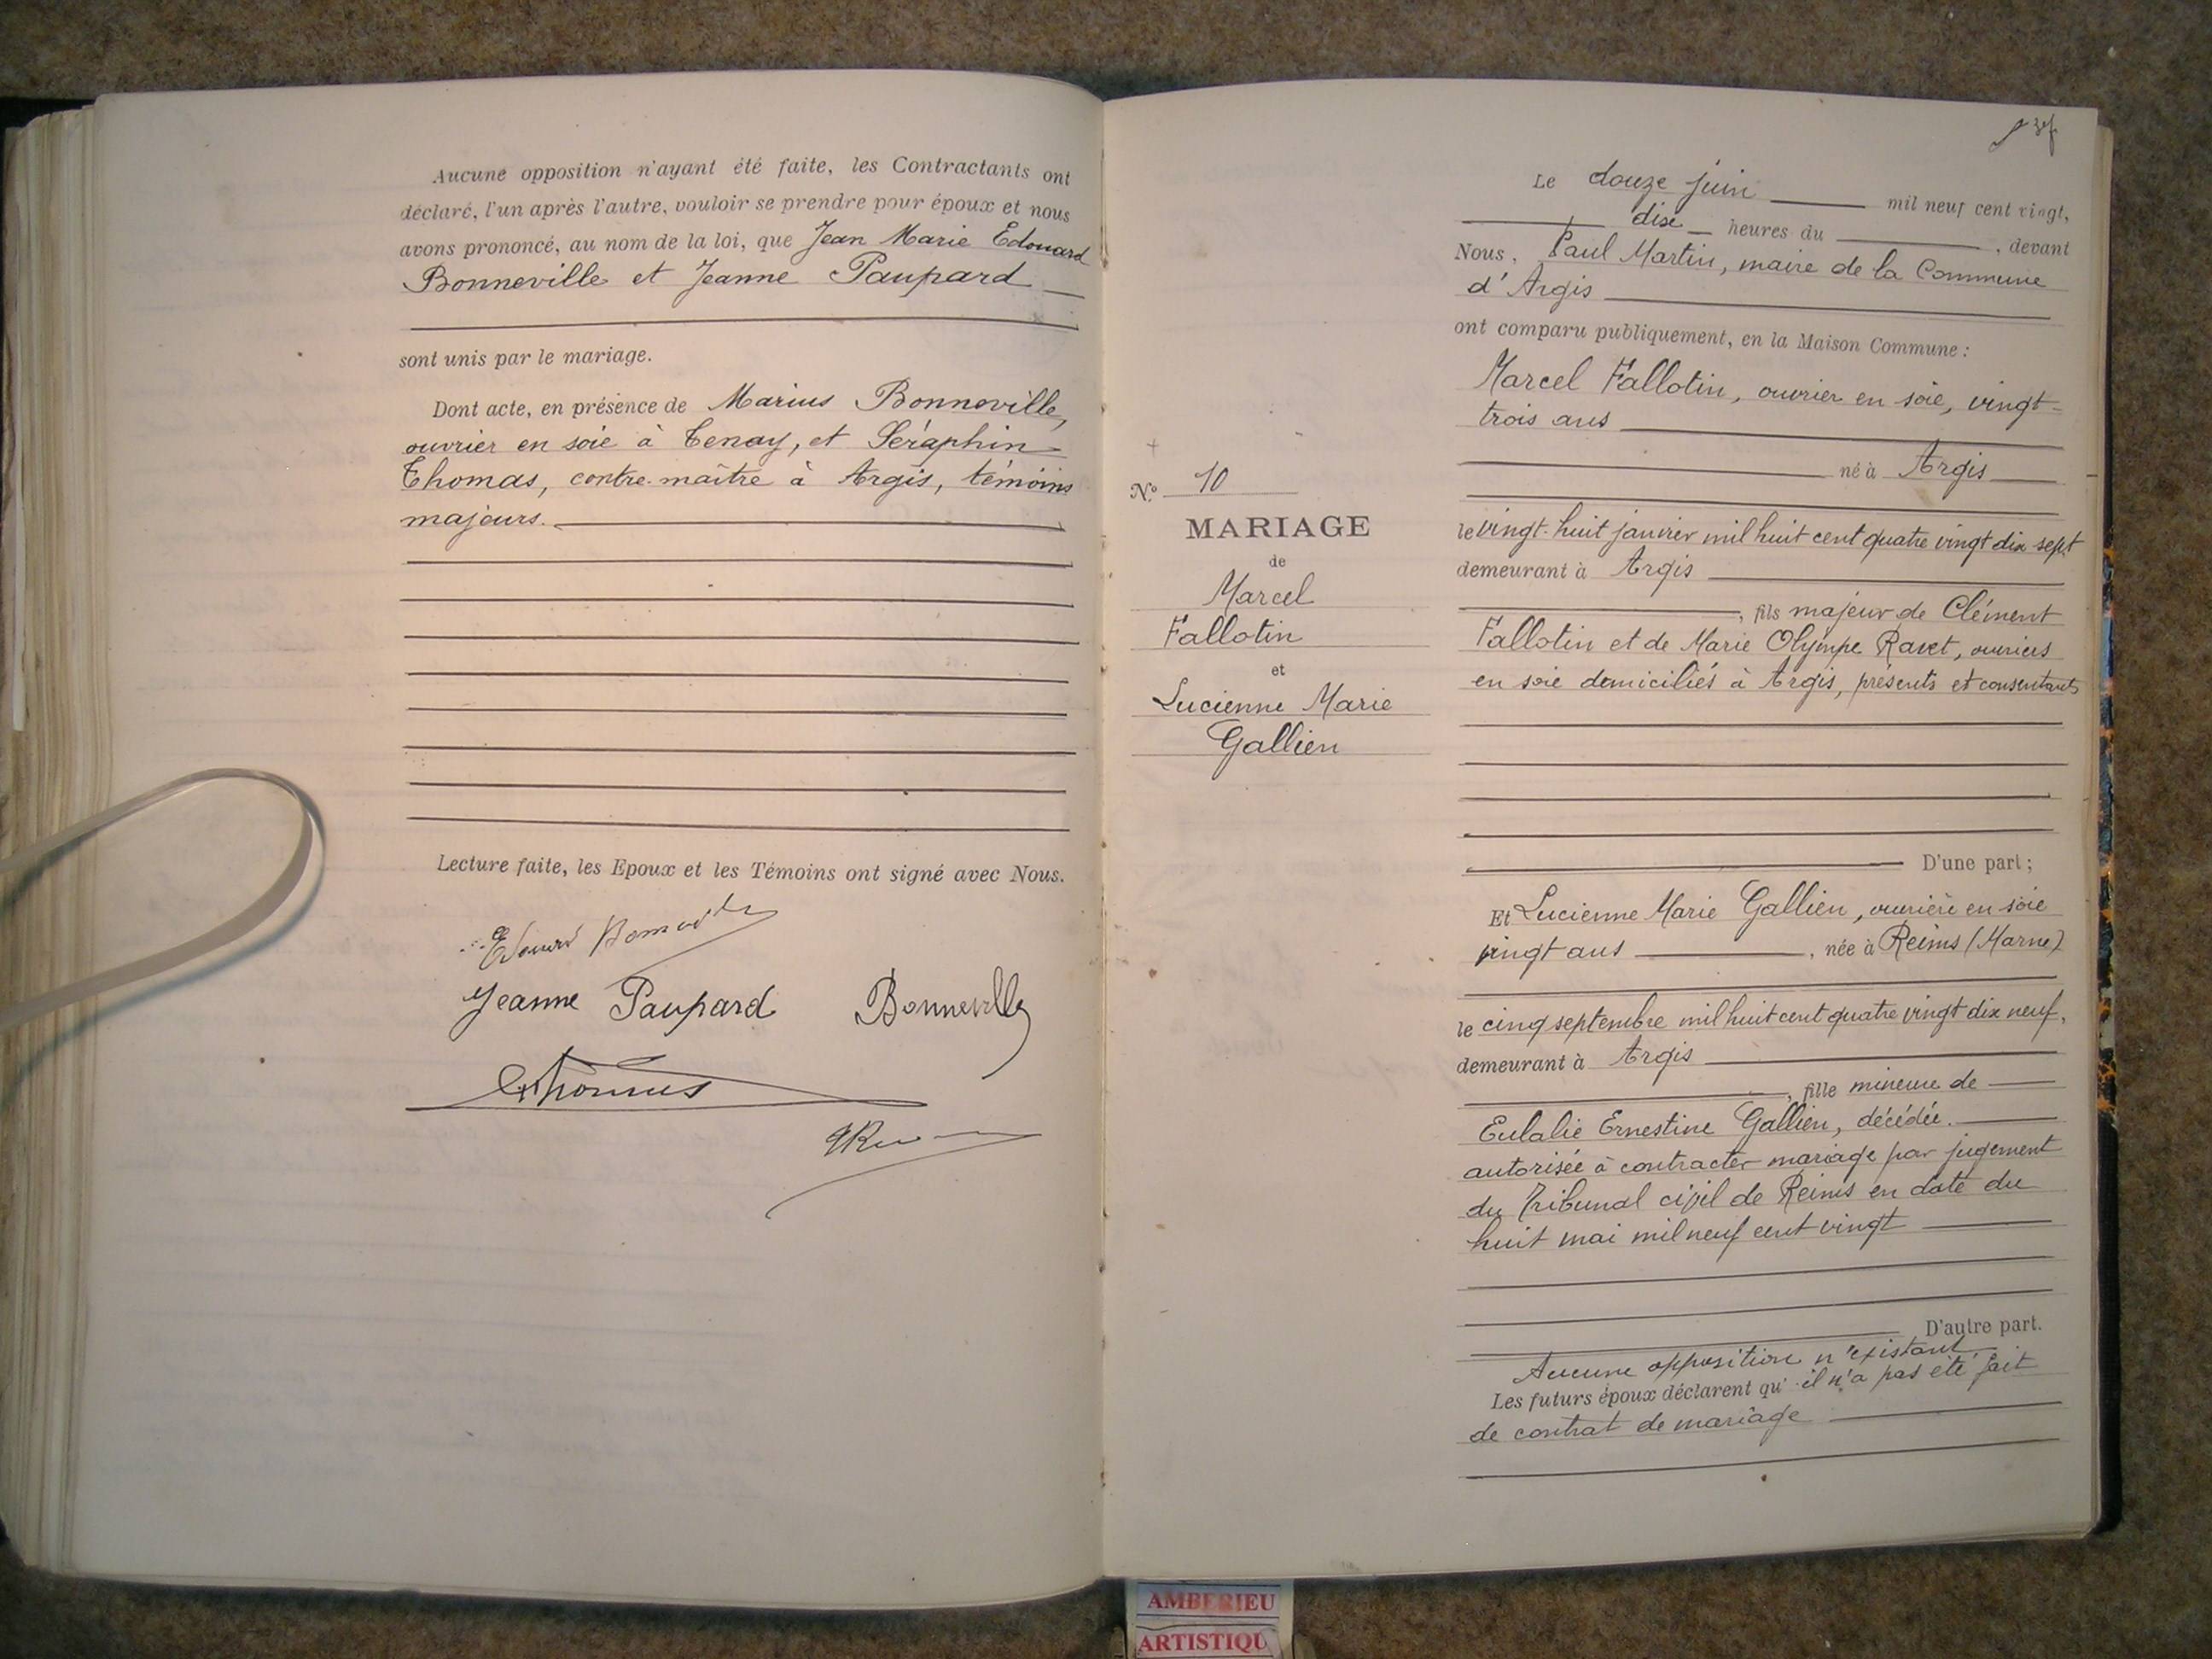 Aucune opposition n'ayant été faite, les Contractants ont
déclaré, l'un après l'autre, vouloir se prendre pour époux et nous
avons prononcé, au nom de la loi, que Jean Marie Edouard
Bonneville et Jeanne Paupard
sont unis par le mariage.
Dont acte, en présence de Marius Bonneville,
ouvrier en soie à Tenay, et Séraphin
Thomas, contre-maître à Argis, témoins
majeurs.
Lecture faite, les Epoux et les Témoins ont signé avec Nous.
Jeanne Paupard Bonneville
Thomas
Le douze juin mil neuf cent vingt,
dix heures du , devant
Nous, Paul Martin, maire de la Commune
d'Argis
ont comparu publiquement, en la Maison Commune :
Marcel Fallotin, ouvrier en soie, vingt-
trois ans
né à Argis
le vingt-huit janvier mil huit cent quatre vingt dix sept
demeurant à Argis
, fils majeur de Clément
Fallotin et de Marie Olympe Ravet, ouvriers
en soie domiciliés à Argis, présents et consentants
D'une part ;
Et Lucienne Marie Gallien, ouvrière en soie
vingt ans , née à Reims (Marne)
le cinq septembre mil huit cent quatre vingt dix neuf,
demeurant à Argis
, fille mineure de
Eulalie Ernestine Gallien, décédée.
autorisée à contracter mariage par jugement
du Tribunal civil de Reims en date du
huit mai mil neuf cent vingt
D'autre part.
Aucune opposition n'existant
Les futurs époux déclarent qu'il n'a pas été fait
de contrat de mariage
N.º 10
MARIAGE
de
Marcel
Fallotin
et
Lucienne Marie
Gallien
AMBERIEU
ARTISTIQU